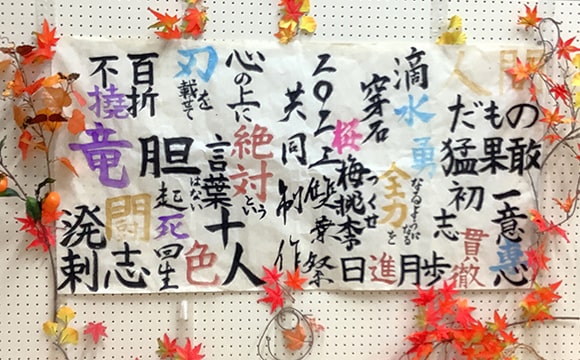 人間
だもの
勇猛果敢
一意専心
初志
貫徹
滴水
穿石
全力を
つくせ
日進月歩
桜梅桃李
共同制作
心の上に
刃を載せて
絶対という
言葉はない
十人
色
百折
不撓
竜
胆
起死回生
闘志
溌剌